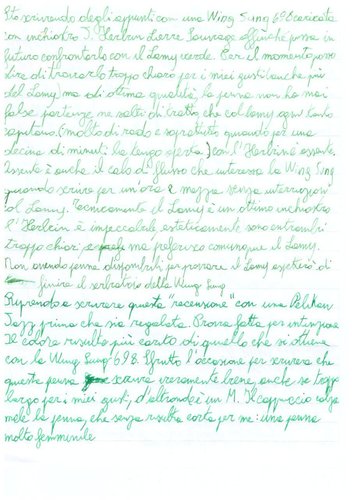 Sto scrivendo degli appunti con una Wing Sung 698 caricata
con inchiostro J. Herbin Lierre Sauvage affinchè possa in
futuro confrontarlo con il Lamy verde. Per il momento posso
dire di trovarlo troppo chiaro per i miei gusti (anche più
del Lamy) ma di ottima qualità, la penna non ha mai
false partenze, ne salti di tratto, che col Lamy ogni tanto
capitano (molto di rado e soprattutto quando per una
decina di minuti la tengo aperta.) con l'Herbin è assente.
Assente è anche il calo di flusso che interessa la Wing Sung
quando scrivo per un'ora e mezza senza interruzioni
col Lamy. Tecnicamente il Lamy è un ottimo inchiostro
l'Herbin è impeccabile, esteticamente sono entrambi
troppo chiari, ma preferisco comunque il Lamy.
Non avendo penne disponibili per provare il Lamy aspetterò di
finire il serbatoio della Wing Sung
Riprendo a scrivere questa "recensione" con una Pelikan
Jazz, primo che sia regalata. Prova fatta per intenzione
Il colore risulta più carico di quello che si ottiene
con la Wing Sung 698. Sfrutto l'occasione per scrivere che
questa penna scrive veramente bene, anche se troppo
largo per i miei gusti, d'altronde è un M. Il cappuccio calza
male la penna, che senza risulta corta per me: una penna
molto femminile